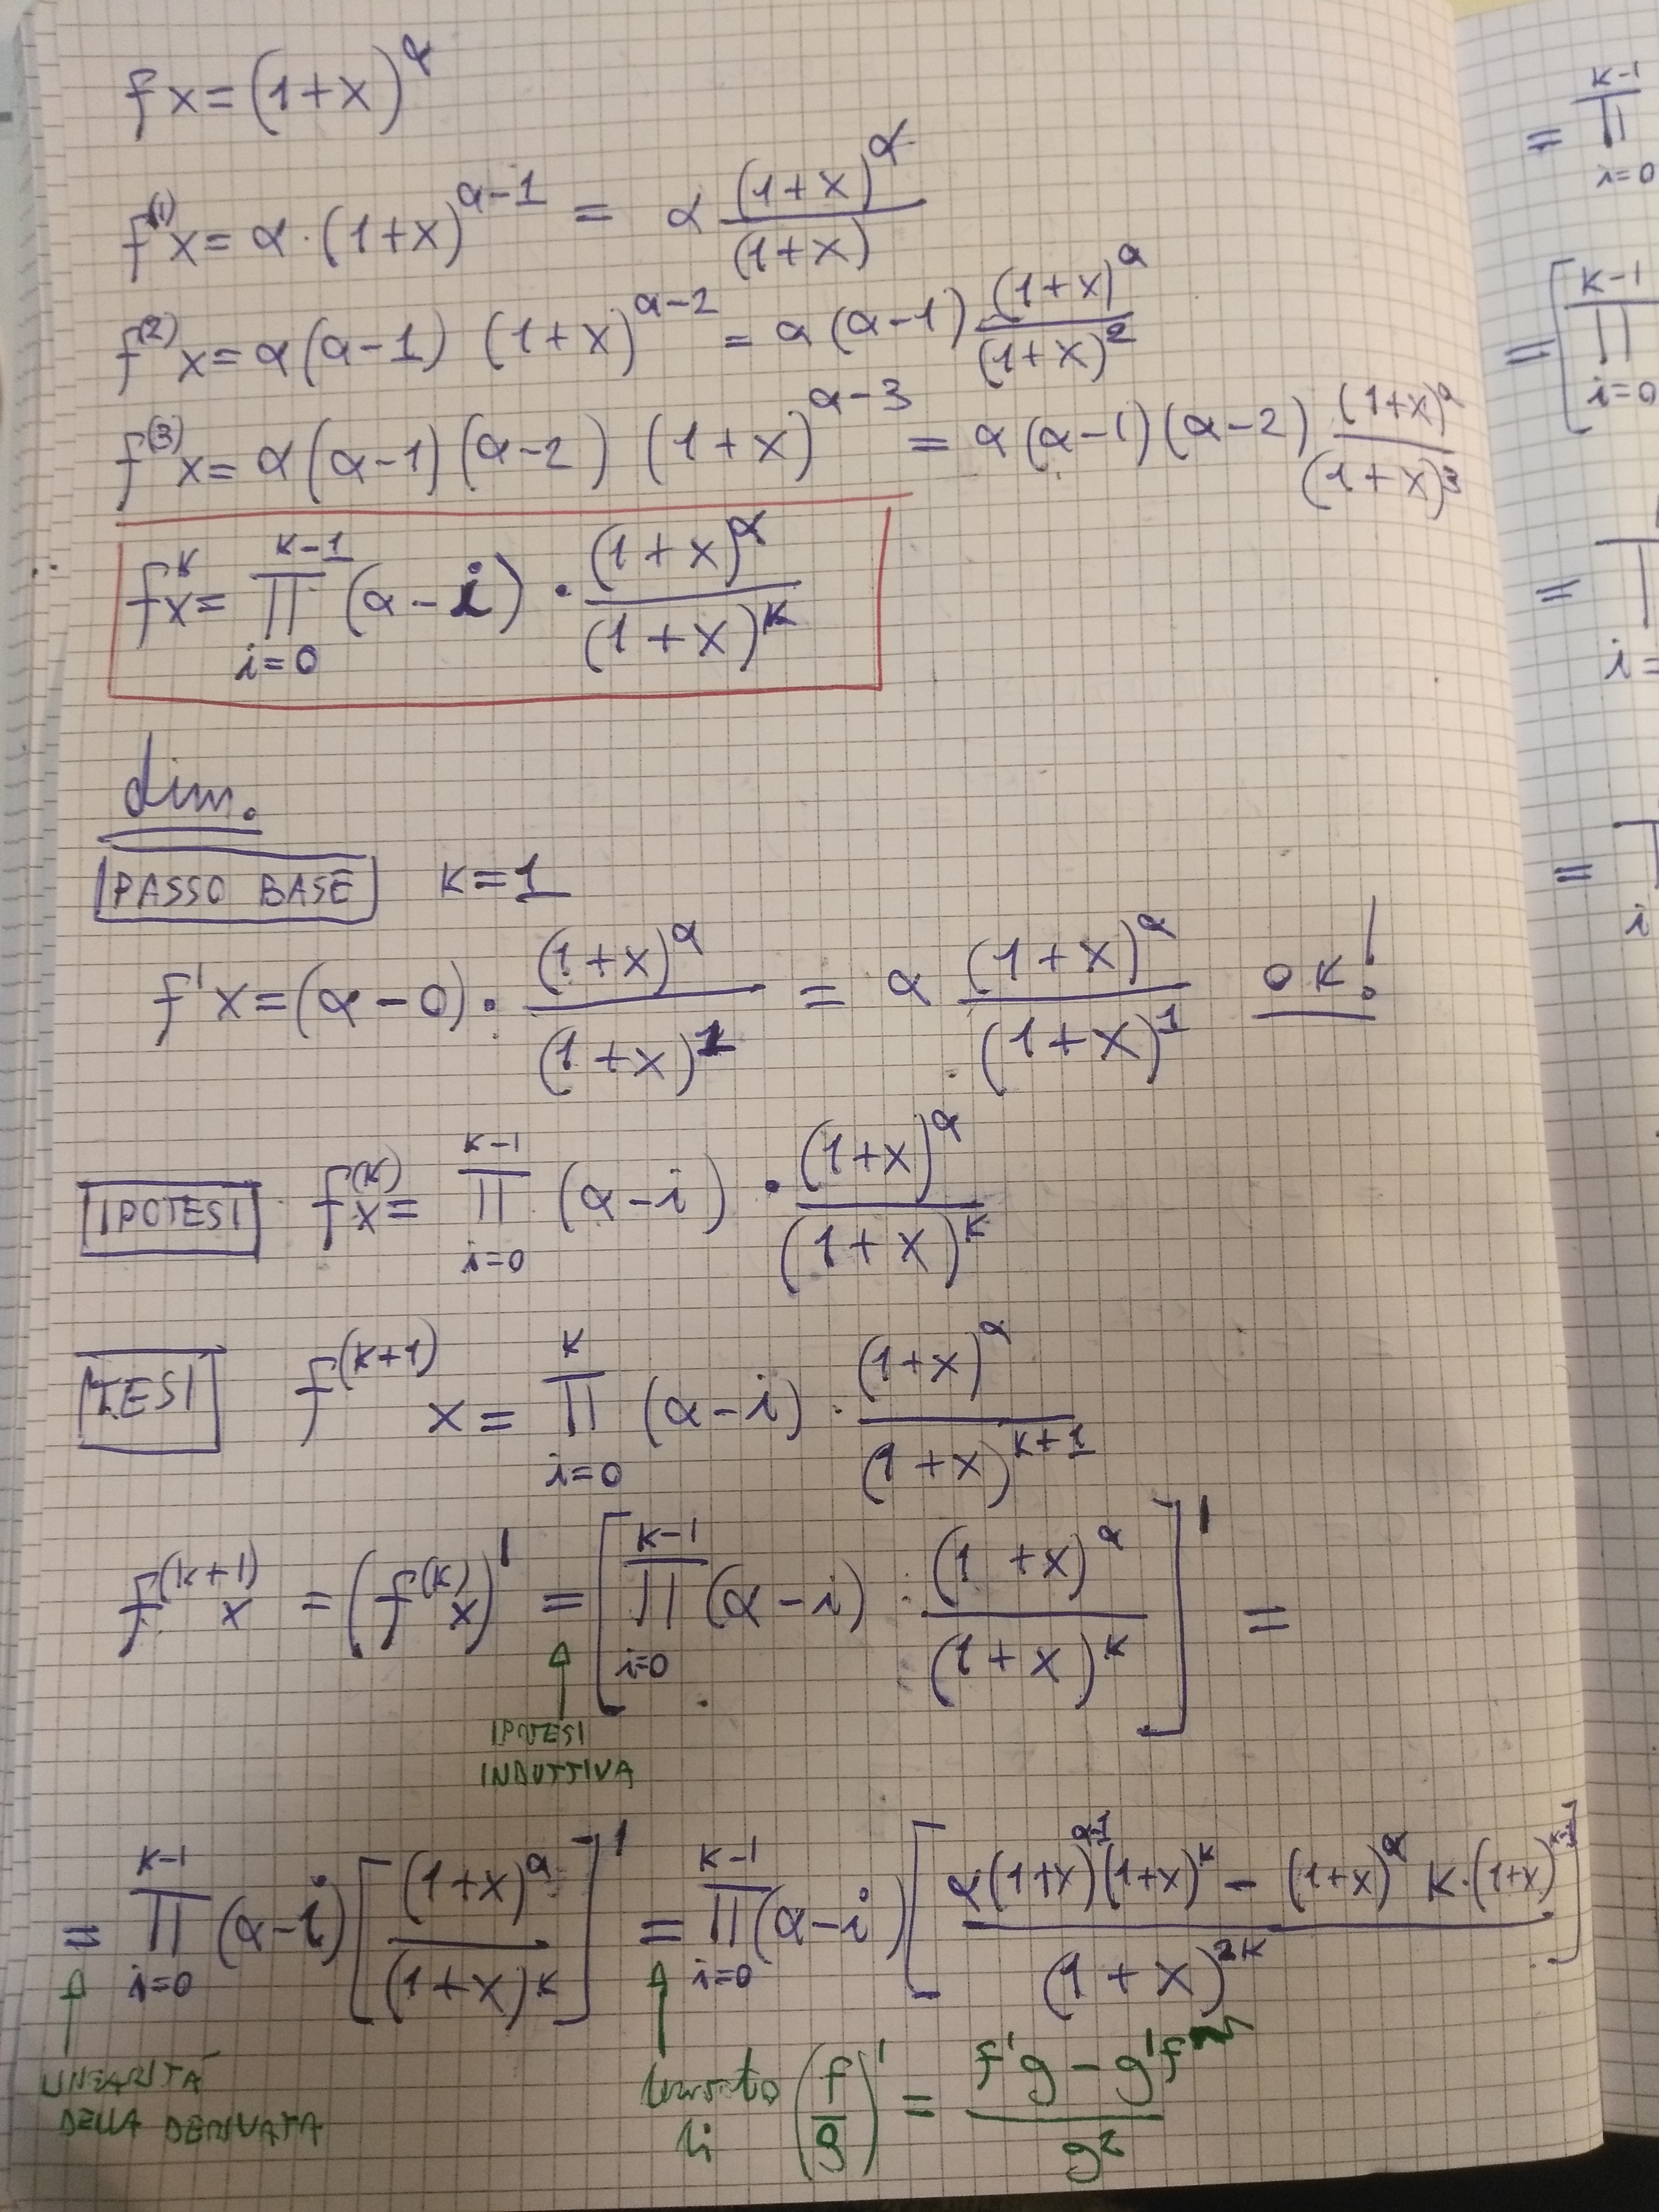 fx = (1+x)^α
f^(1) x = α·(1+x)^(α-1) = α (1+x)^α / (1+x)
f^(2) x = α(α-1) (1+x)^(α-2) = α(α-1) (1+x)^α / (1+x)^2
f^(3) x = α(α-1)(α-2) (1+x)^(α-3) = α(α-1)(α-2) (1+x)^α / (1+x)^3
f^k x = ∏_{i=0}^{k-1} (α-i) · (1+x)^α / (1+x)^k
dim.
PASSO BASE k=1
f' x = (α-0) · (1+x)^α / (1+x)^1 = α (1+x)^α / (1+x)^1 OK!
IPOTESI f^(k) x = ∏_{i=0}^{k-1} (α-i) · (1+x)^α / (1+x)^k
TESI f^(k+1) x = ∏_{i=0}^{k} (α-i) · (1+x)^α / (1+x)^(k+1)
f^(k+1) x = (f^(k) x)' = [∏_{i=0}^{k-1} (α-i) · (1+x)^α / (1+x)^k]' =
IPOTESI
INDUTTIVA
= ∏_{i=0}^{k-1} (α-i) [(1+x)^α / (1+x)^k]' = ∏_{i=0}^{k-1} (α-i) [α(1+x)^(α-1) (1+x)^k - (1+x)^α k·(1+x)^(k-1) / (1+x)^(2k)]
LINEARITÀ
DELLA DERIVATA
di (f/g)' = f'g - g'f / g^2
= ∏_{i=0}^{k-1}
= [∏_{i=0}^{k-1}
=
i=
=
i